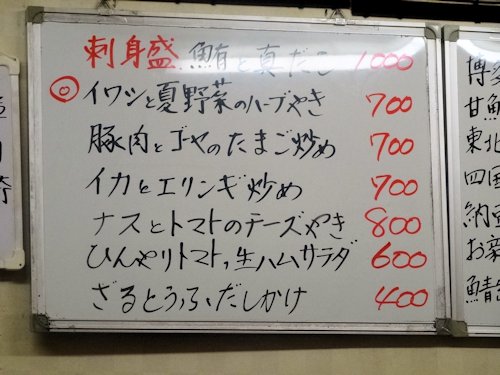 刺身盛 鮪と真だこ 1000
◎イワシと夏野菜のハーブやき 700
豚肉とゴーヤのたまご炒め 700
イカとエリンギ炒め 700
ナスとトマトのチーズやき 800
ひんやりトマト,生ハムサラダ 600
ざるとうふ、だしかけ 400
博多
甘鯛
東北
四国
納豆
お新
鯖